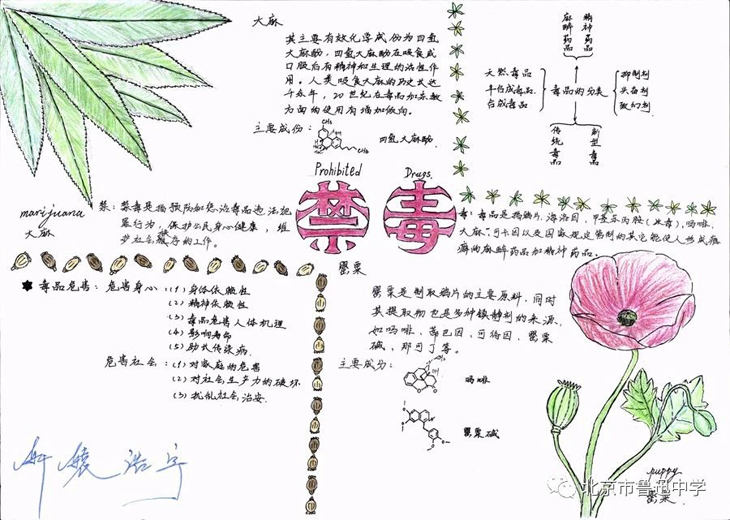 大麻
其主要有效化学成份为四氢
大麻酚，四氢大麻酚在吸食或
口服后有精神和生理的活性作
用。人类吸食大麻的历史长达
千余年，20世纪在毒品和宗教
方面的使用有增加倾向。
主要成份：
四氢大麻酚
麻醉药品
精神药品
天然毒品
半合成毒品
合成毒品
毒品的分类
抑制剂
兴奋剂
致幻剂
传统毒品
新型毒品
Prohibited
Drugs
禁毒
marijuana
大麻
禁：禁毒是指预防和惩治毒品违法犯
罪行为，保护公民身心健康，维
护社会秩序的工作。
毒：毒品是指鸦片、海洛因、甲基苯丙胺（冰毒）、吗啡、
大麻、可卡因以及国家规定管制的其它能使人形成瘾
癖的麻醉药品和精神药品。
毒品危害：危害身心：(1)身体依赖性
(2)精神依赖性
(3)毒品危害人体机理
(4)影响寿命
(5)助长传染病
危害社会：(1)对家庭的危害
(2)对社会生产力的破坏
(3)扰乱社会治安.
罂粟
罂粟是制取鸦片的主要原料，同时
其提取物也是多种镇静剂的来源，
如吗啡、蒂巴因、可待因、罂粟
碱、那可丁等。
主要成分：
吗啡
罂粟碱
puppy
罂粟
北京市鲁迅中学